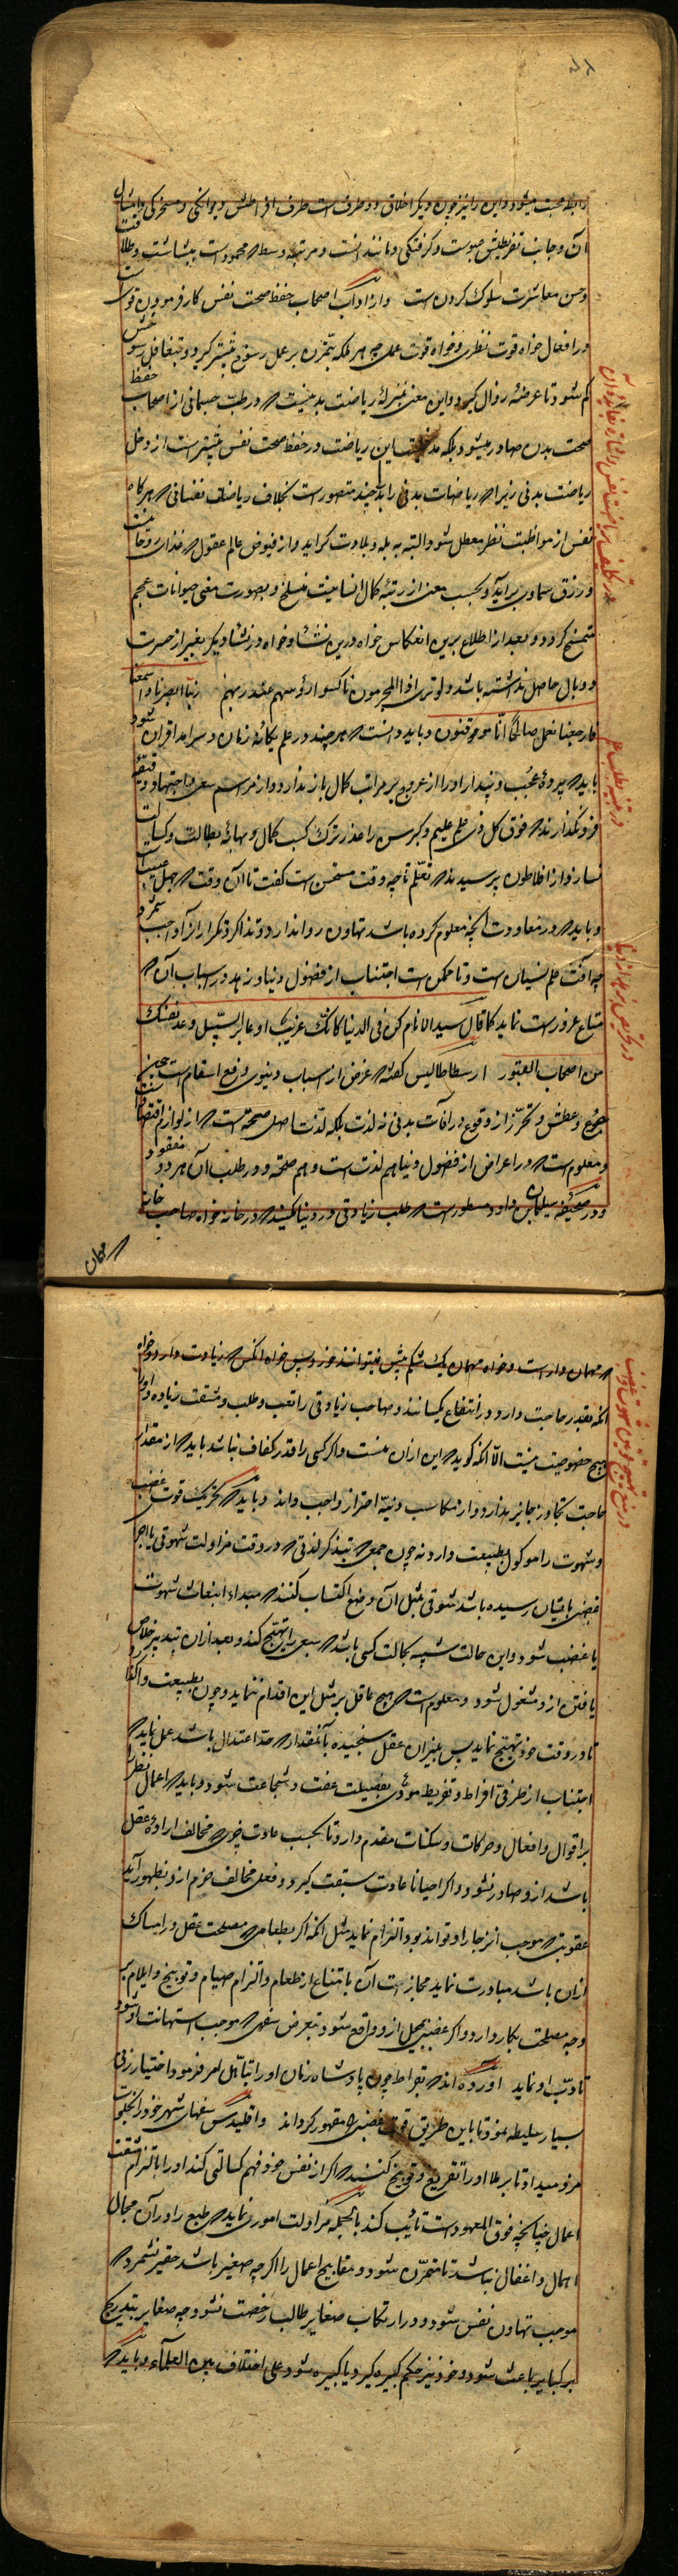 رابطه محبت میشود و این را نیز چون دیگر اخلاق دو طرف است طرف افراطش دیوانکی و مسخرکی و امثال
آن و جانب تفریطش عبوست و کرفتکی و مانند انست و مرتبه وسط که محمود است بشاشت و طلاقت
و حسن معاشرت سلوک کردن است و از آداب اصحاب حفظ صحت نفس کار فرمودن قوت است
در افعال خواه قوت نظری و خواه قوت عملی چه هر ملکه بتمرّن بر عمل رسوخ بیشتر کیرد و بتغافل رسوخش
کم شود تا عرضهٔ زوال کیرد و این معنی بمنزلهٔ ریاضت بدنیست که در طب جسمانی از اصحاب حفظ
صحت بدن صادر میشود بلکه مدخلیت این ریاضت در حفظ صحت نفس بیشتر است از دخل
ریاضت بدنی زیرا که ریاضات بدنی را بدلی چند متصور است بخلاف ریاضات نفسانی که هرکاه
نفس از مواظبت نظر معطل شود البته به بله و بلادت کراید و از فیوض عالم عقول که غذای روحانیست
و رزق سماوی برآید و بحسب معنی از رتبه کمال انسانیت منسلخ و بصورت معنی حیوانات عجم
متمسخ کردد و بعد از اطلاع برین انعکاس خواه درین نشئاه و خواه در نشئاه دیکر بغیر از حسرت
و وبال حاصل نداشته باشد ولو تری اذ المجرمون ناکسوا رؤسهم عند ربهم ربنا ابصرنا و سمعنا
فارجعنا نعمل صالحاً انّا موقنون و باید دانست که هرچند در علم یکانه زمان و سرآمد اقران شود
باید که پردهٔ عجب و پندار او را از عروج بر مراتب کمال باز ندارد و از مراسم سعی و اجتهاد دقیقه
فرو نکذارند که فوق کل ذی علم علیم و کبر سن را عذر ترک کسب کمال و بهانهٔ بطالت و کسالت
نسازد از افلاطون پرسیدند که تعلّم تا چه وقت مستحسن است کفت تا آن وقت که جهل عیبست
و باید که در معاودت آنچه معلوم کرده باشد تهاون روا ندارد و تذاکر و تکرار آنرا واجب شمرد
چه آفت علم نسیان است و تا ممکن است اجتناب از فضول دنیا و زهد در اسباب آن که
متاع غرور است نماید کما قال سید الانام کن فی الدنیا کانّک غریبٌ او عابر السبیل و عد نفسک
من اصحاب القبور ارسطاطالیس کفته که غرض از اسباب دنیوی دفع اسقام است همچون
جوع و عطش و تحرّز از وقوع در آفات بدنی نه لذت بلکه لذت اصلی صحت است که از لوازم اقتصادست
و معلوم است که در اعراض از فضول دنیا هم لذت است و هم صحت و در طلب آن هر دو مفقود
و در صحیفهٔ سلیمان داود مسطور است که طلب زیادتی در دنیا مکنید که در خانه خواه صاحب خانه
که مهمان
در تکلیف ریاضت نفس
در تنبیه طلب علم
در تحریص زهد از دنیا
که مهمان دار است و خواه مهمان یک شکم بیش نمیتواند خورد پس خواه آنکس که زیادت دارد و خواه
آنکه بقدر حاجت دارد در انتفاع یکسانند و صاحب زیادتی را تعب و طلب و مشقت زیاده و او را
هیچ خصوصیت نیست الا آنکه کوید که این از آن منست و اکر کسی را قدر کفاف نباشد باید که از مقدار
حاجت تجاوز جایز ندارد و از مکاسب دنیّه احتراز واجب داند و باید که تحریک قوت غضب
و شهوت را موکول بطبیعت دارد نه چون جمعی که بتذکر لذتی که در وقت مزاولت شهوتی یا اجرای
غضبی بایشان رسیده باشد شوقی بمثل آن وضع اکتساب کنند که مبداء انبعاث شهوت
یا غضب شود و این حالت شبیه بحالت کسی باشد که سبعی را تهیّج کند و بعد از آن بتدبیر خلاص
یافتن ازو مشغول شود و معلوم است که هیچ عاقل بر مثل این اقدام ننماید و چون بطبیعت واکذارد
تا در وقت خود تهیّج نماید پس بمیزان عقل سنجیده بآنمقدار که حدّ اعتدال باشد عمل نماید که
اجتناب از طرفی افراط و تفریط مؤدی بفضیلت عفت و شجاعت شود و باید که اعمال نظر را
بر اقوال و افعال و حرکات و سکنات مقدم دارد تا بحسب عادت چیزی که مخالف ارادهٔ عقل
باشد ازو صادر نشود و اکر احیانا عادت سبقت کیرد و فعلی مخالف حزم ازو بظهور آید
عقوبتی که موجب انزجار او تواند بود التزام نماید مثل آنکه اکر بطعامی که مصلحت عقل در امساک
از آن باشد مبادرت نماید مجازات آن بامتناع از طعام و التزام صیام و توبیخ و ایلام بر
وجه مصلحت بکار دارد و اکر غضبی بیمحل ازو واقع شود بتعرض سفهی که موجب استهانت او شود
تأدیب او نماید آورده اند که بقراط چون پادشاه زمان او را تبأهّل امر فرمود اختیار زنی
بسیار سلیطه نمود تا باین طریق قوت غضبی را مقهور کرداند و اقلیدس سفهای شهر خود را بخلوت
مزد میداد تا برملا او را تقریع و توبیخ کنند که اکر از نفس خود فهم کسالتی کند او را بالتزام مشقت
اعمال چنانچه فوق المعهودست تأدیب کند بالجمله مزاولت اموری نماید که طبع را در آن مجال
اهمال و اغفال نباشد تا متمرّن شود و مقابح اعمال را اکرچه صغیر باشد حقیر نشمرد که
موجب تهاون نفس شود و در ارتکاب صغایر طالب رخصت نشود چه صغایر بتدریج
بر کبایر باعث شود و خود نیز حکم کبیره کیرد یا کبیره شود علی اختلاف بین العلماء و باید که